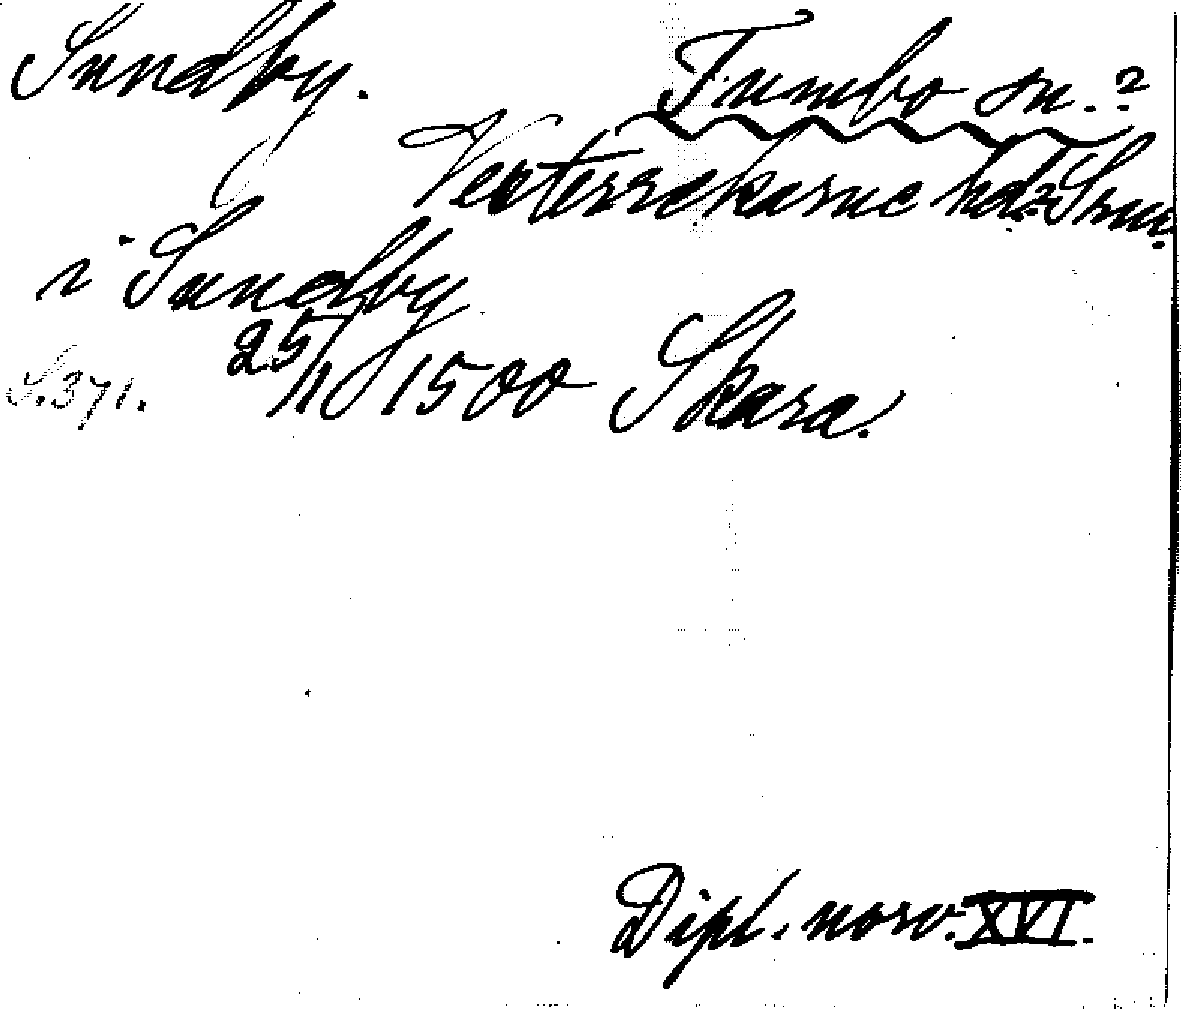 Sundby.
Tumbo sn.?
Vesterrekarne hd.? Srm.
i Sundby
25/11 1500 Skara.
S. 371.
Dipl. norv. XVI.